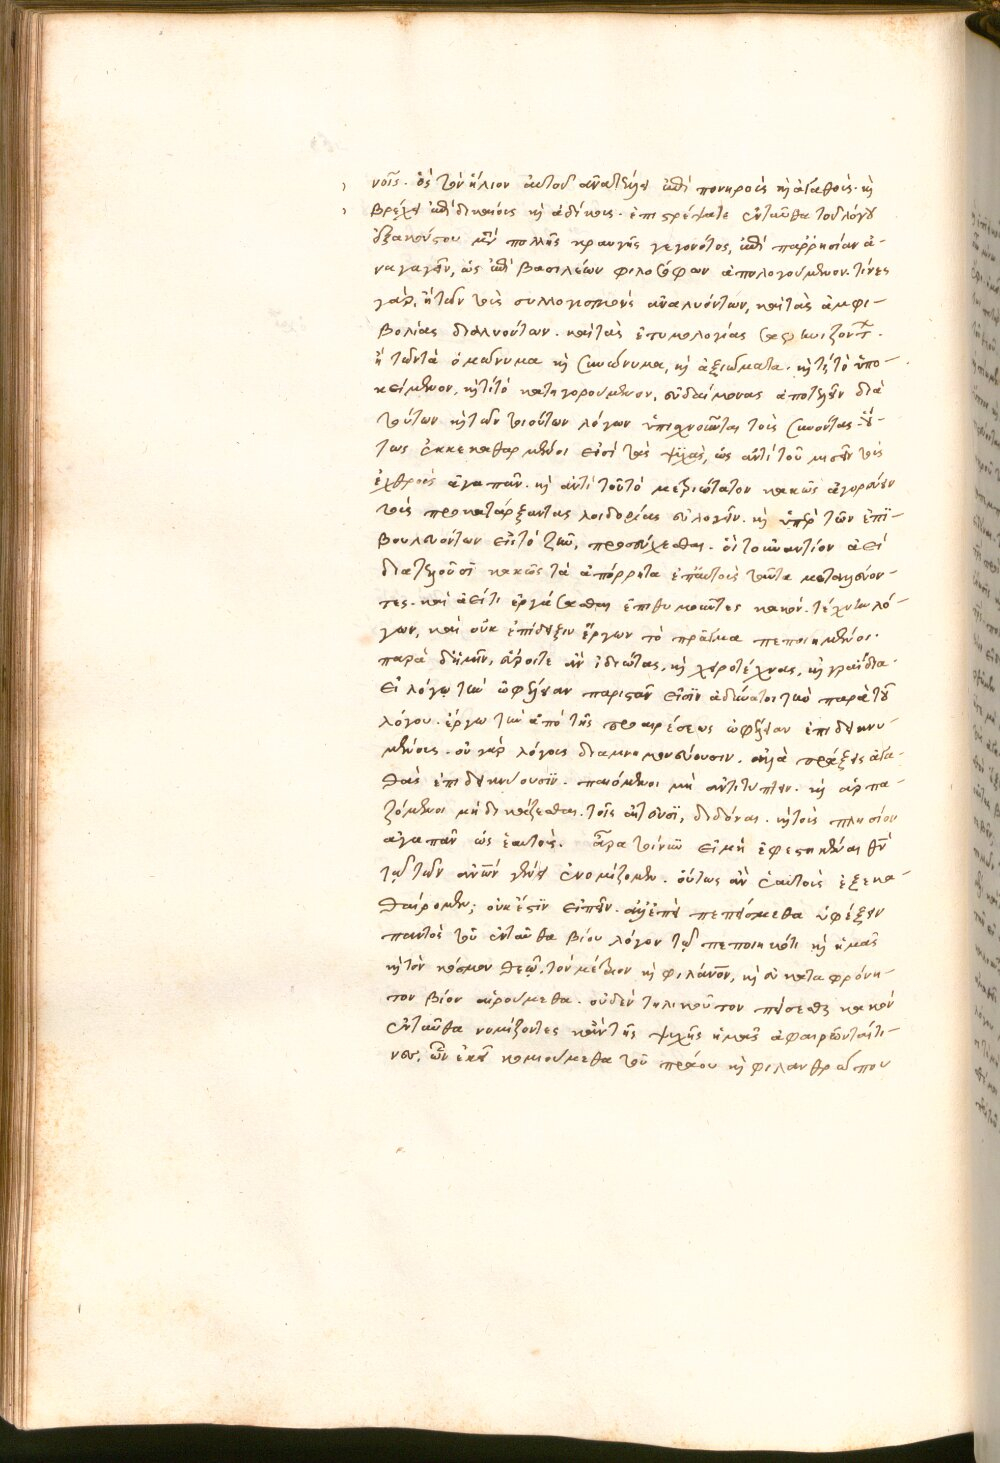 νοῖς. ὃς τὸν ἥλιον αὐτοῦ ἀνατέλλει ἐπὶ πονηροὺς κὶ ἀγαθοὺς. κὶ
βρέχει ἐπὶ δικαίοις κὶ ἀδίκοις. ἐπιτρέψατε ἐνταῦθα τοῦ λόγου
ἐξακούστου μετὰ πολλῆς κραυγῆς γεγονότος, ἐπὶ παῤῥησίαν ἀ-
ναγαγεῖν, ὡς ἐπὶ βασιλέων φιλοσόφων ἀπολογούμενον. τίνες
γὰρ, ἢ τῶν τοὺς συλλογισμοὺς ἀναλυόντων, καὶ τὰς ἀμφι-
βολίας διαλυόντων. καὶ τὰς ἐτυμολογίας σαφηνιζόντων.
ἢ τῶν τὰ ὁμώνυμα κὶ συνώνυμα, κὶ ἀξιώματα. κὶ τί τὸ ὑπο-
κείμενον, κὶ τί τὸ κατηγορούμενον, εὐδαίμονας ἀποτελεῖν διὰ
τούτων κὶ τῶν τοιούτων λόγων ὑπισχνοῦνται τοὺς συνόντας. οὕ-
τως ἐκκεκαθαρμένοι εἰσὶ τὰς ψυχὰς, ὡς ἀντὶ τοῦ μισεῖν τοὺς
ἐχθροὺς ἀγαπᾶν. κὶ ἀντὶ τοῦ τὸ μετριώτατον κακῶς ἀγορεύειν
τοὺς προκατάρξαντας λοιδορίας εὐλογεῖν. κὶ ὑπὲρ τῶν ἐπι-
βουλευόντων εἰς τὸ ζῆν, προσεύχεσθαι. οἳ τοὐναντίον ἀεὶ
διατελοῦσι κακῶς τὰ ἀπόρρητα ἐπ' αὐτοὺς ταῦτα μεταλλεύον-
τες. καὶ ἀεί τι ἐργάσασθαι ἐπιθυμοῦντες κακόν. τέχνην λό-
γων, καὶ οὐκ ἐπίδειξιν ἔργων τὸ πρᾶγμα πεποιημένοι.
παρὰ δ' ἡμῖν, εὕροιτε ἂν ἰδιώτας, κὶ χειροτέχνας, κὶ γραΐδια.
εἰ λόγῳ τὴν ὠφέλειαν παριστᾶν εἰσὶν ἀδύνατοι τὴν παρὰ τοῦ
λόγου. ἔργῳ τὴν ἀπὸ τῆς προαιρέσεως ὠφέλειαν ἐπιδεικνυ-
μένους. οὐ γὰρ λόγους διαμνημονεύουσιν. ἀλλὰ πράξεις ἀγα-
θὰς ἐπιδεικνύουσιν. παιόμενοι μὴ ἀντιτύπτειν. κὶ ἁρπα-
ζόμενοι μὴ δικάζεσθαι. τοῖς αἰτοῦσιν, διδόναι. κὶ τοὺς πλησίον
ἀγαπᾶν ὡς ἑαυτοὺς. ἆρα τοίνυν εἰ μὴ ἐφεστηκέναι θεὸν
τῷ τῶν ἀνθρώπων γένει ἐνομίζομεν. οὕτως ἂν ἑαυτοὺς ἐξεκα-
θαίρομεν; οὐκ ἔστιν εἰπεῖν. ἀλλ' ἐπεὶ πεπείσμεθα ὑφέξειν
παντὸς τοῦ ἐνταῦθα βίου λόγον τῷ πεποιηκότι κὶ ἡμᾶς
κὶ τὸν κόσμον θεῷ. τὸν μέτριον κὶ φιλάνθρωπον, κὶ εὐκαταφρόνη-
τον βίον αἱρούμεθα. οὐδὲν τηλικοῦτον πείσεσθαι κακὸν
ἐνταῦθα νομίζοντες κἂν τῆς ψυχῆς ἡμᾶς ἀφαιρῶνταί τι-
νες, ὧν ἐκεῖ κομιούμεθα τοῦ πράου κὶ φιλανθρώπου